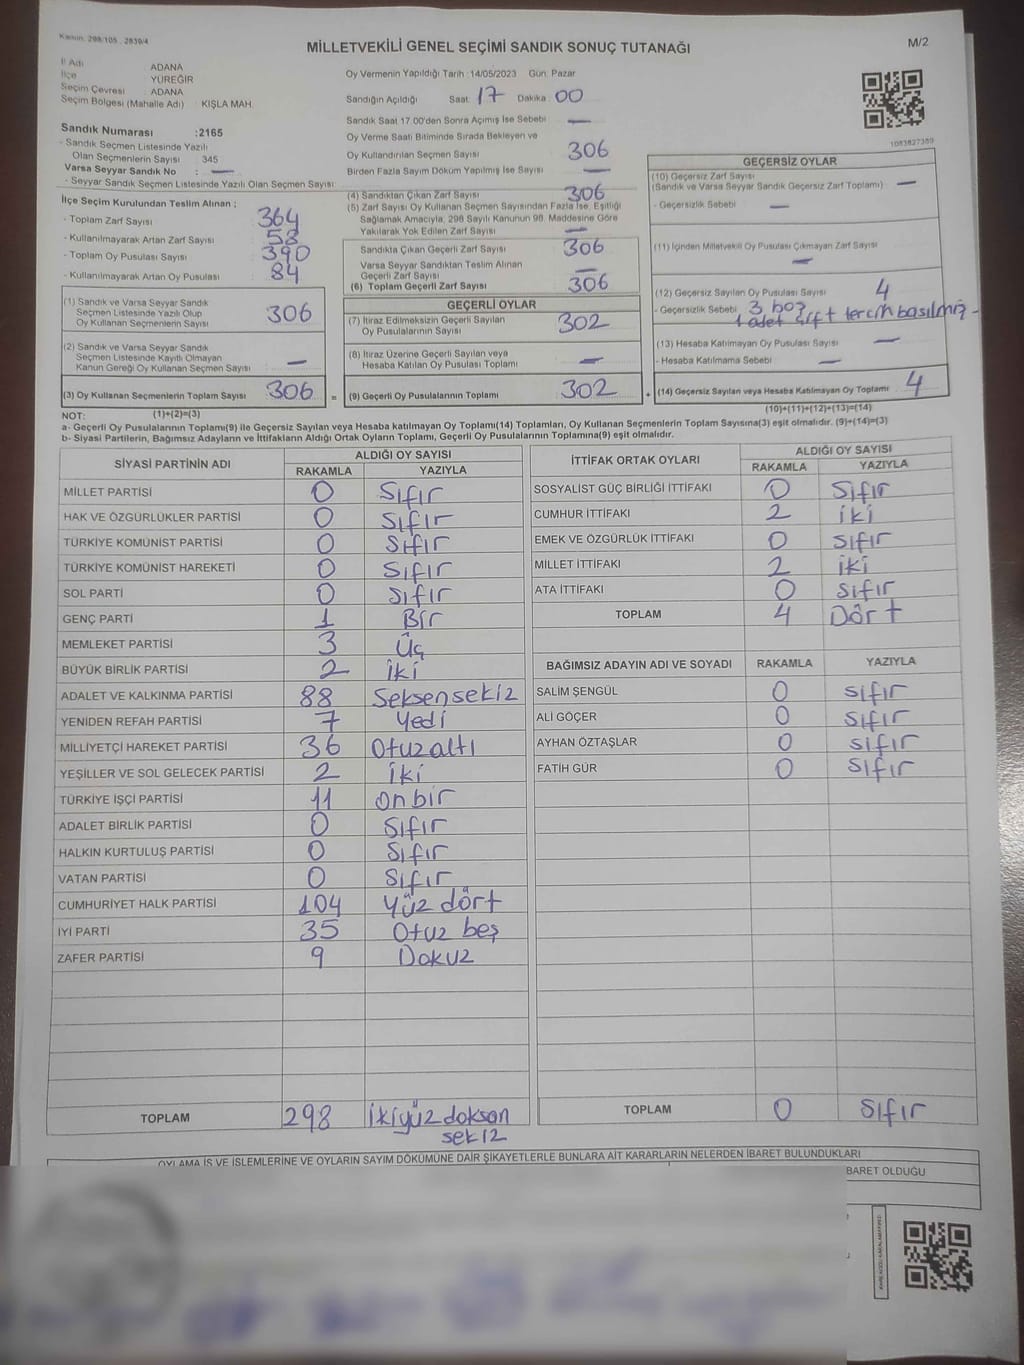 Kanun: 298/105 , 2839/4
MİLLETVEKİLİ GENEL SEÇİMİ SANDIK SONUÇ TUTANAĞI
M/2
İl Adı ADANA
İlçe YÜREĞİR
Seçim Çevresi ADANA
Seçim Bölgesi (Mahalle Adı) KIŞLA MAH.
Sandık Numarası :2165
- Sandık Seçmen Listesinde Yazılı
Olan Seçmenlerin Sayısı 345
Varsa Seyyar Sandık No : —
- Seyyar Sandık Seçmen Listesinde Yazılı Olan Seçmen Sayısı:
Oy Vermenin Yapıldığı Tarih :14/05/2023 Gün: Pazar
Sandığın Açıldığı Saat: 17 Dakika: 00
Sandık Saat 17.00'den Sonra Açımış İse Sebebi —
Oy Verme Saati Bitiminde Sırada Bekleyen ve
Oy Kullandırılan Seçmen Sayısı 306
Birden Fazla Sayım Döküm Yapılmış İse Sayısı —
1083827389
İlçe Seçim Kurulundan Teslim Alınan ;
- Toplam Zarf Sayısı 364
- Kullanılmayarak Artan Zarf Sayısı 58
- Toplam Oy Pusulası Sayısı 390
- Kullanılmayarak Artan Oy Pusulası 84
(1) Sandık ve Varsa Seyyar Sandık
Seçmen Listesinde Yazılı Olup
Oy Kullanan Seçmenlerin Sayısı 306
(2) Sandık ve Varsa Seyyar Sandık
Seçmen Listesinde Kayıtlı Olmayan
Kanun Gereği Oy Kullanan Seçmen Sayısı —
(3) Oy Kullanan Seçmenlerin Toplam Sayısı 306 =
(4) Sandıktan Çıkan Zarf Sayısı 306
(5) Zarf Sayısı Oy Kullanan Seçmen Sayısından Fazla İse, Eşitliği
Sağlamak Amacıyla, 298 Sayılı Kanunun 98. Maddesine Göre
Yakılarak Yok Edilen Zarf Sayısı —
Sandıkta Çıkan Geçerli Zarf Sayısı 306
Varsa Seyyar Sandıktan Teslim Alınan
Geçerli Zarf Sayısı —
(6) Toplam Geçerli Zarf Sayısı 306
GEÇERLİ OYLAR
(7) İtiraz Edilmeksizin Geçerli Sayılan
Oy Pusulalarının Sayısı 302
(8) İtiraz Üzerine Geçerli Sayılan veya
Hesaba Katılan Oy Pusulası Toplamı —
(9) Geçerli Oy Pusulalarının Toplamı 302 +
GEÇERSİZ OYLAR
(10) Geçersiz Zarf Sayısı
(Sandık ve Varsa Seyyar Sandık Geçersiz Zarf Toplamı) —
- Geçersizlik Sebebi —
(11) İçinden Milletvekili Oy Pusulası Çıkmayan Zarf Sayısı
—
(12) Geçersiz Sayılan Oy Pusulası Sayısı 4
- Geçersizlik Sebebi 3 boş
1 adet çift tercih basılmış -
(13) Hesaba Katılmayan Oy Pusulası Sayısı —
- Hesaba Katılmama Sebebi —
(14) Geçersiz Sayılan veya Hesaba Katılmayan Oy Toplamı 4
NOT: (1)+(2)=(3)
(10)+(11)+(12)+(13)=(14)
a- Geçerli Oy Pusulalarının Toplamı(9) ile Geçersiz Sayılan veya Hesaba katılmayan Oy Toplamı(14) Toplamları, Oy Kullanan Seçmenlerin Toplam Sayısına(3) eşit olmalıdır. (9)+(14)=(3)
b- Siyasi Partilerin, Bağımsız Adayların ve İttifakların Aldığı Ortak Oyların Toplamı, Geçerli Oy Pusulalarının Toplamına(9) eşit olmalıdır.
SİYASİ PARTİNİN ADI ALDIĞI OY SAYISI
RAKAMLA YAZIYLA
MİLLET PARTİSİ 0 Sıfır
HAK VE ÖZGÜRLÜKLER PARTİSİ 0 Sıfır
TÜRKİYE KOMÜNİST PARTİSİ 0 Sıfır
TÜRKİYE KOMÜNİST HAREKETİ 0 Sıfır
SOL PARTİ 0 Sıfır
GENÇ PARTİ 1 Bir
MEMLEKET PARTİSİ 3 Üç
BÜYÜK BİRLİK PARTİSİ 2 iki
ADALET VE KALKINMA PARTİSİ 88 Seksensekiz
YENİDEN REFAH PARTİSİ 7 Yedi
MİLLİYETÇİ HAREKET PARTİSİ 36 Otuzaltı
YEŞİLLER VE SOL GELECEK PARTİSİ 2 iki
TÜRKİYE İŞÇİ PARTİSİ 11 onbir
ADALET BİRLİK PARTİSİ 0 Sıfır
HALKIN KURTULUŞ PARTİSİ 0 Sıfır
VATAN PARTİSİ 0 Sıfır
CUMHURİYET HALK PARTİSİ 104 Yüz dört
İYİ PARTİ 35 Otuz beş
ZAFER PARTİSİ 9 Dokuz
TOPLAM 298 ikiyüz doksan
sekiz
İTTİFAK ORTAK OYLARI ALDIĞI OY SAYISI
RAKAMLA YAZIYLA
SOSYALİST GÜÇ BİRLİĞİ İTTİFAKI 0 Sıfır
CUMHUR İTTİFAKI 2 iki
EMEK VE ÖZGÜRLÜK İTTİFAKI 0 Sıfır
MİLLET İTTİFAKI 2 iki
ATA İTTİFAKI 0 Sıfır
TOPLAM 4 Dört
BAĞIMSIZ ADAYIN ADI VE SOYADI RAKAMLA YAZIYLA
SALİM ŞENGÜL 0 sıfır
ALİ GÖÇER 0 sıfır
AYHAN ÖZTAŞLAR 0 sıfır
FATİH GÜR 0 sıfır
TOPLAM 0 Sıfır
OYLAMA İŞ VE İŞLEMLERİNE VE OYLARIN SAYIM DÖKÜMÜNE DAİR ŞİKAYETLERLE BUNLARA AİT KARARLARIN NELERDEN İBARET BULUNDUKLARI
BARET OLDUĞU